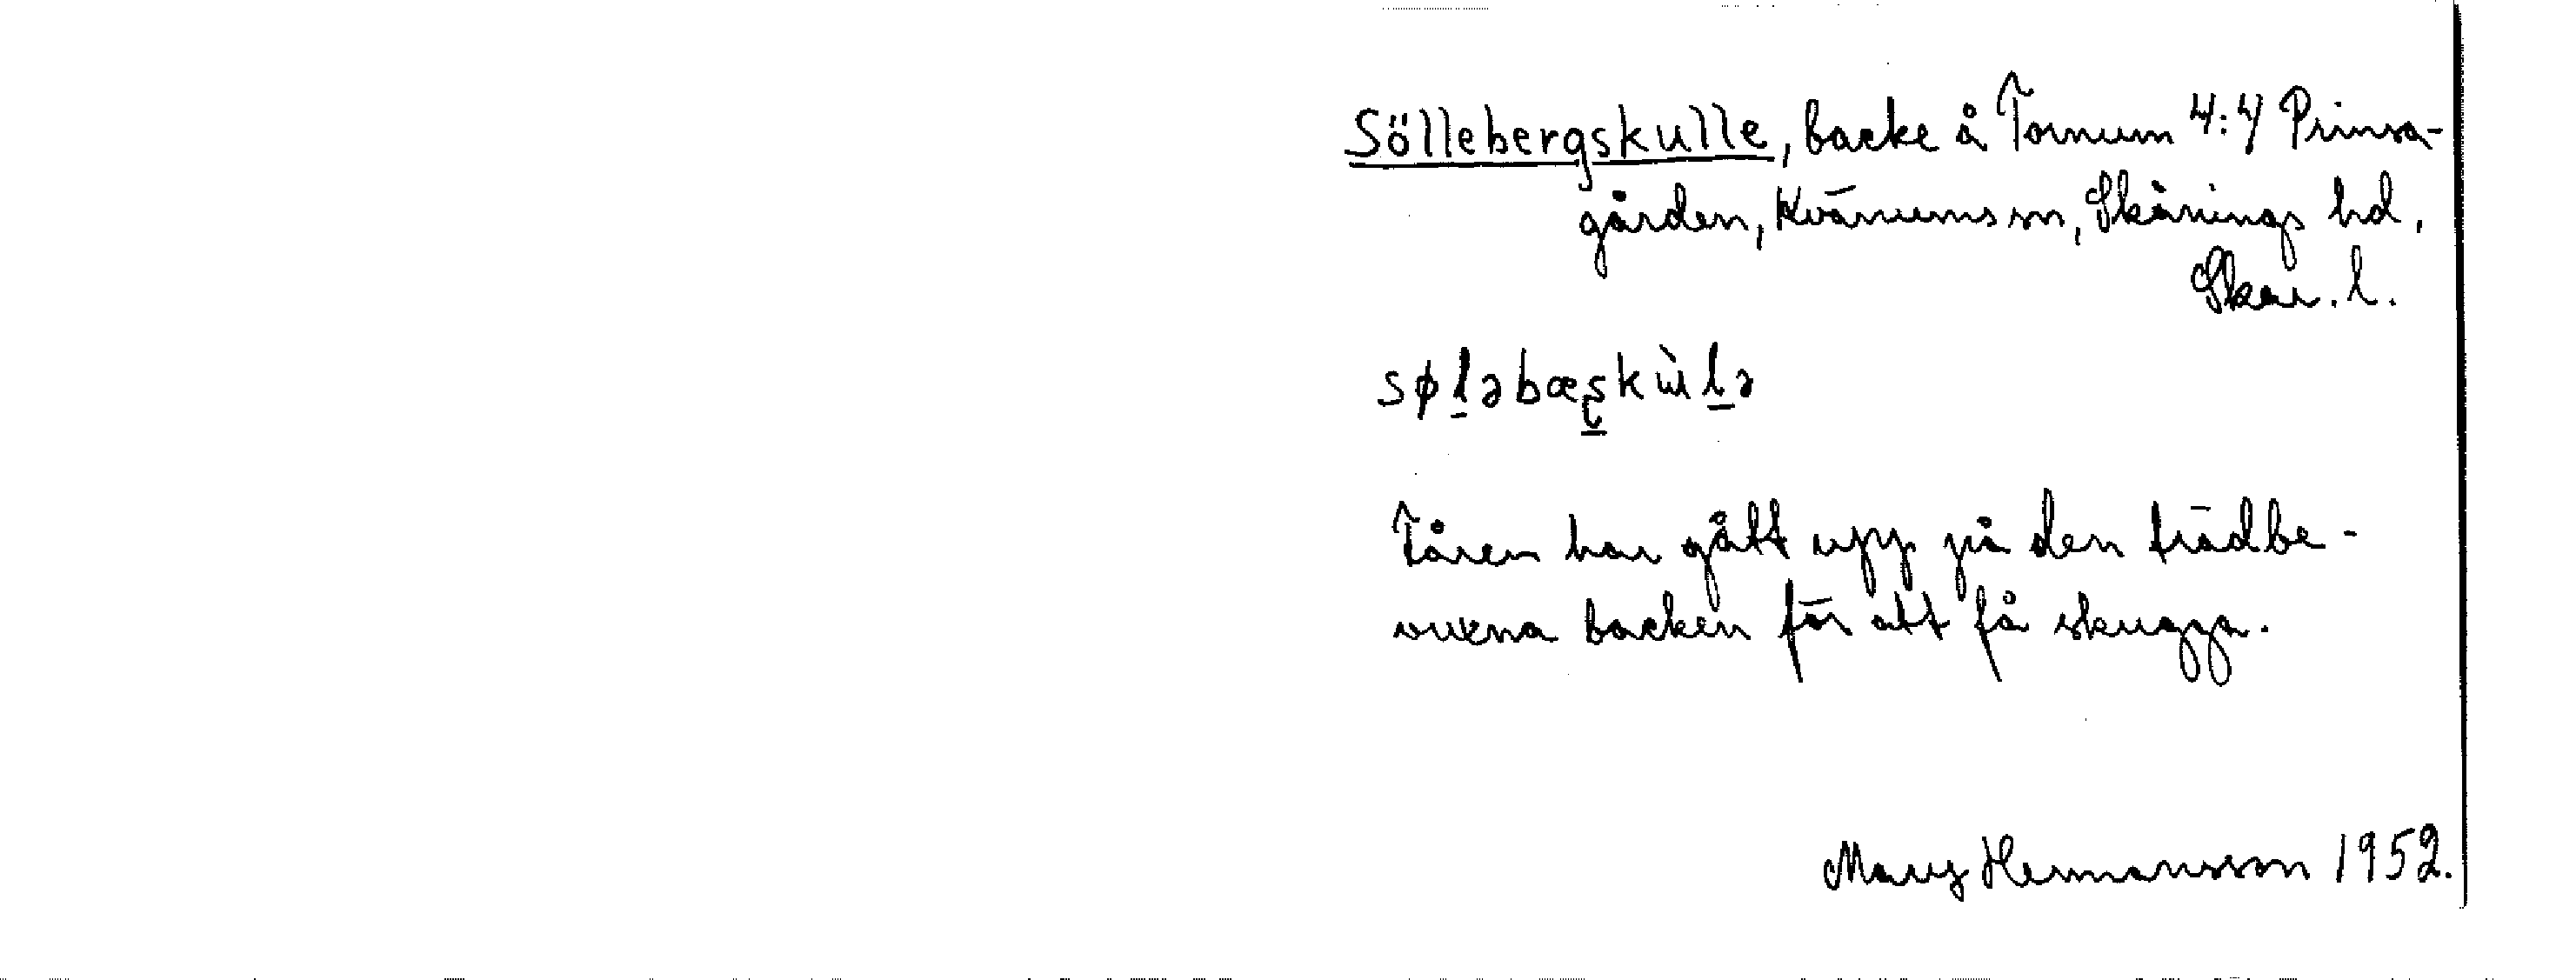 Söllebergskulle, backe å Tornum 4:4 Prinsa-
gården, Kvänums sn, Skånings hd,
Skar. l.
søləbæskùlə
Fåren har gått upp på den trädbe-
vuxna backen för att få skugga.
Mary Hermansson 1952.